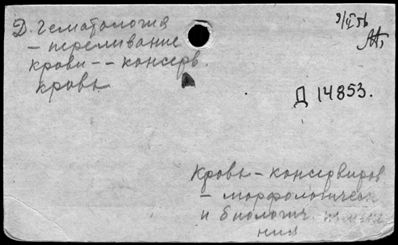 Д. Гематология
- переливание
крови -- консерв.
кровь
Д 14853.
Кровь - консервиров
- морфологическ
и биологич.
ния